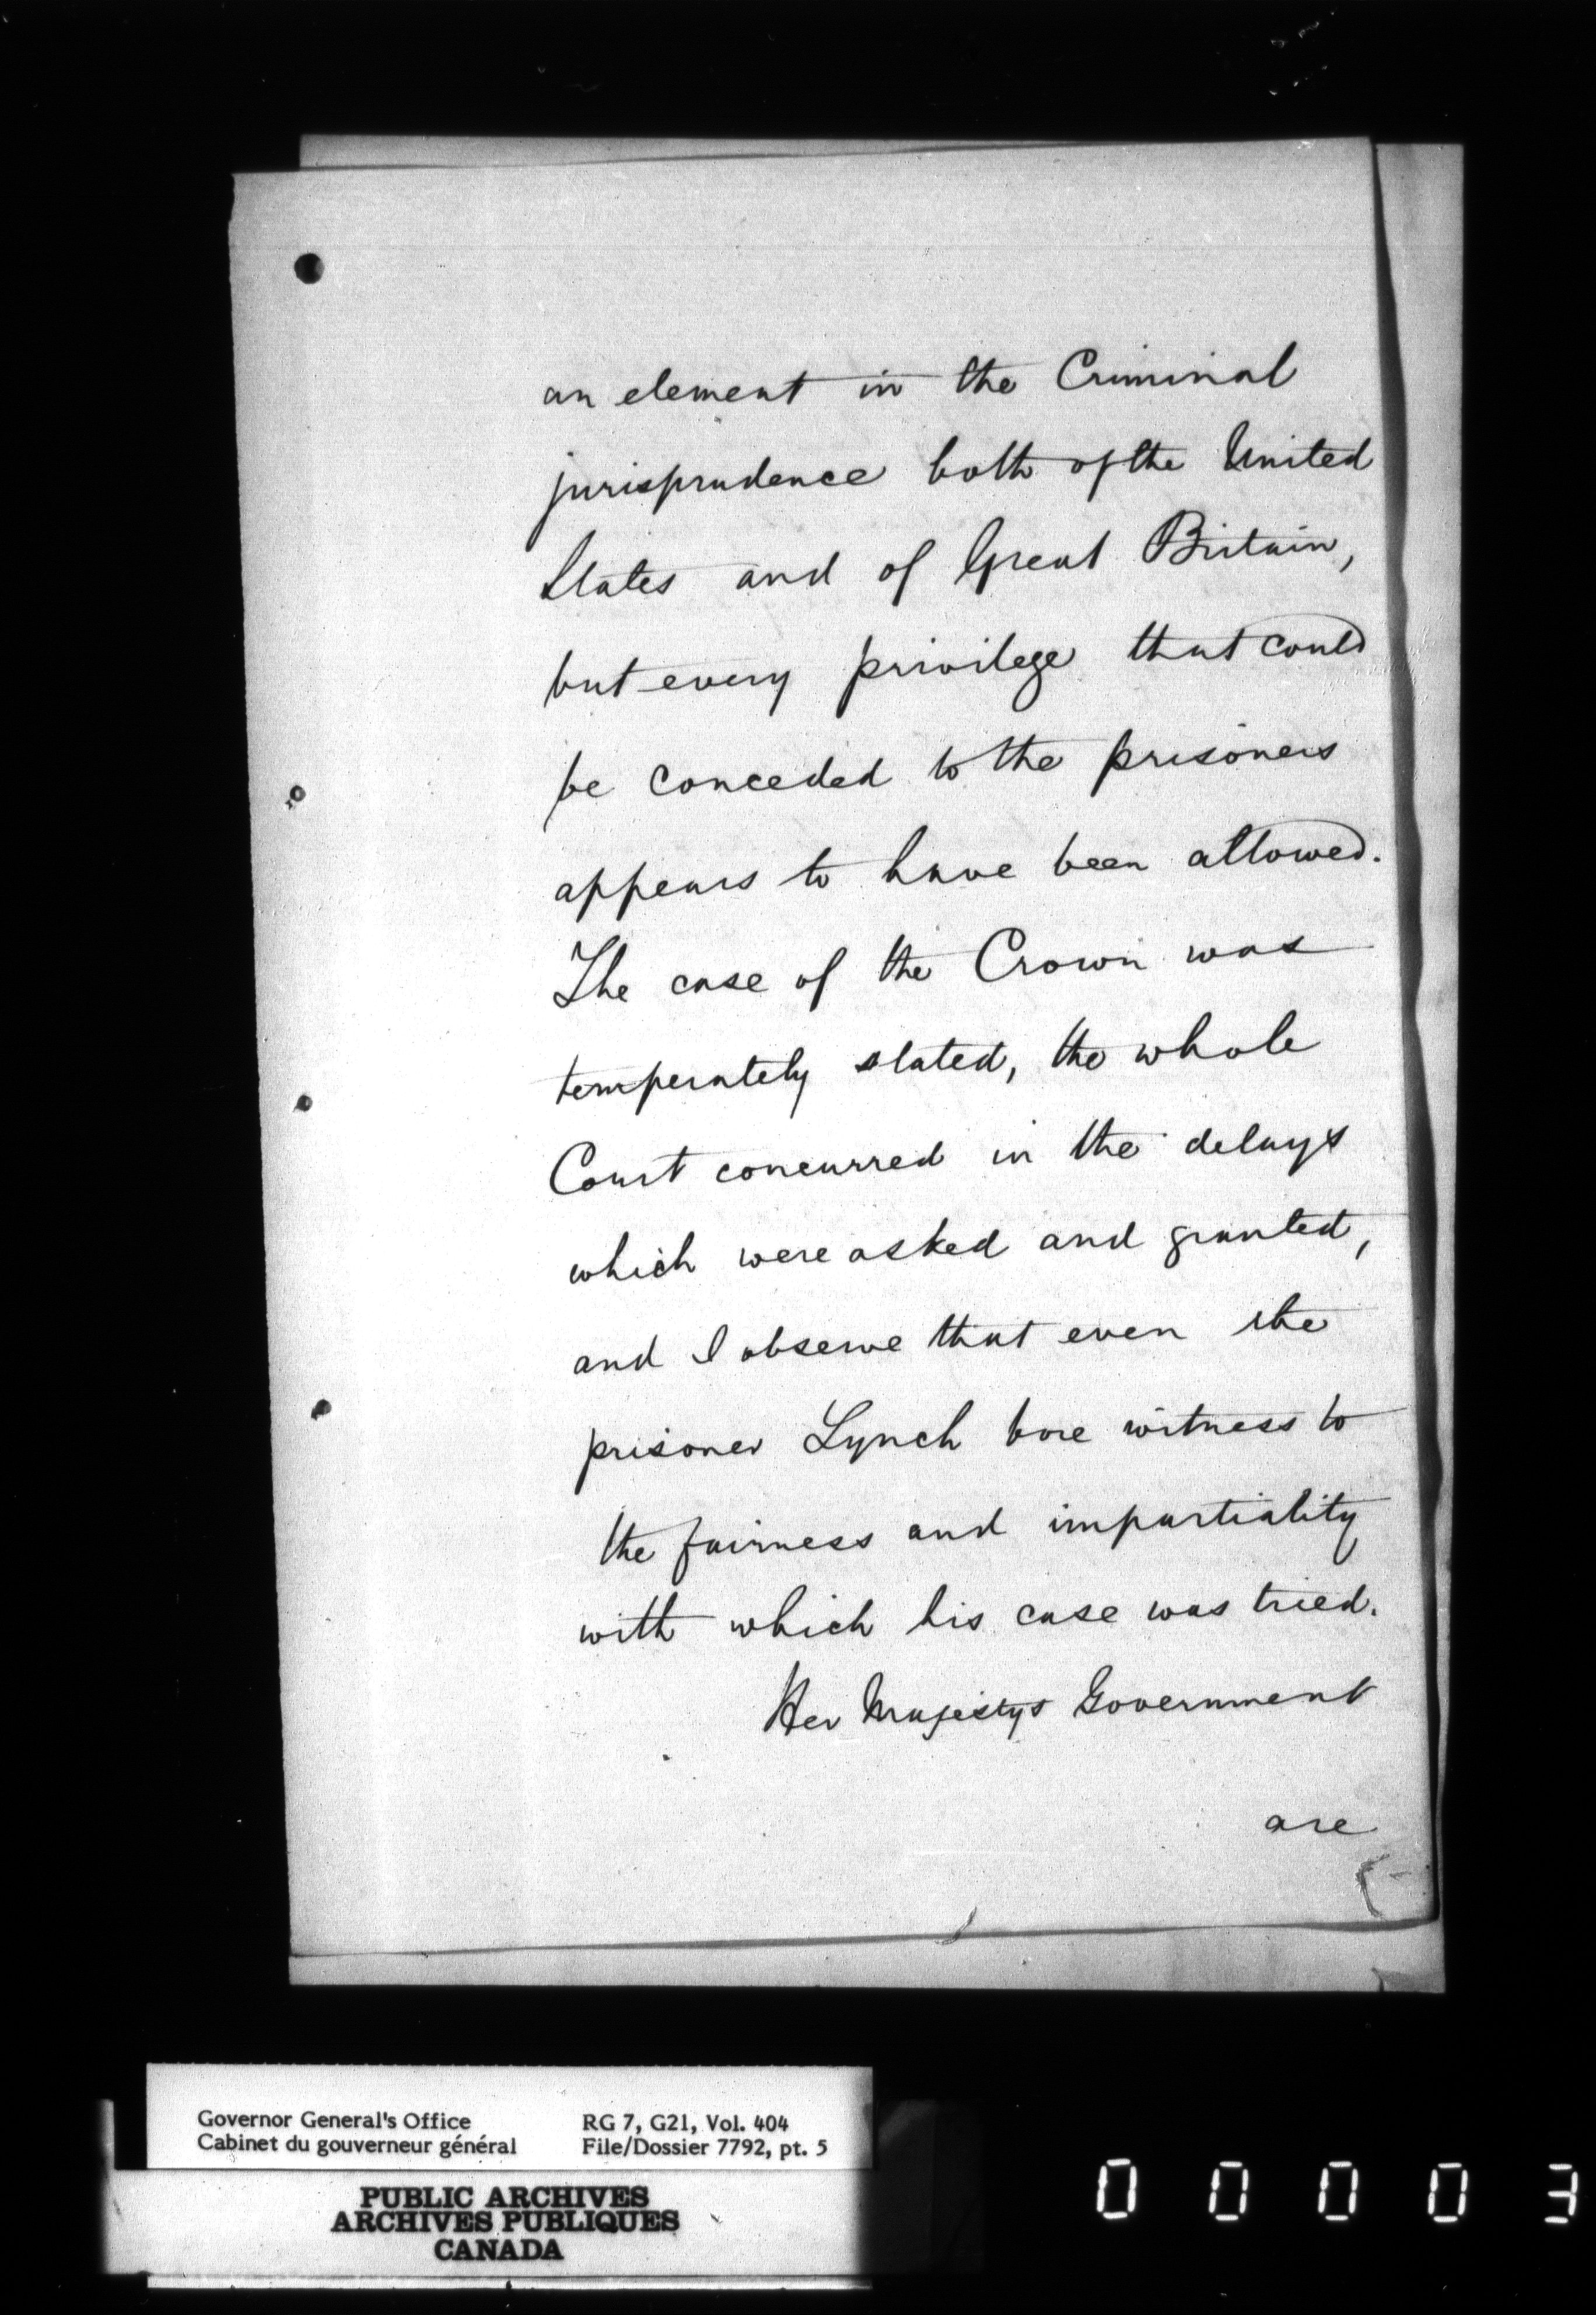 an element in the Criminal
jurisprudence both of the United
States and of Great Britain,
but every privilege that could
be conceded to the prisoners
appears to have been allowed.
The case of the Crown was
temperately stated, the whole
Court concurred in the delays
which were asked and granted,
and I observe that even the
prisoner Lynch bore witness to
the fairness and impartiality
with which his case was tried.
Her Majestys Government
are
Governor General's Office
Cabinet du gouverneur général
RG 7, G21, Vol. 404
File/Dossier 7792, pt. 5
PUBLIC ARCHIVES
ARCHIVES PUBLIQUES
CANADA
0 0 0 0 3